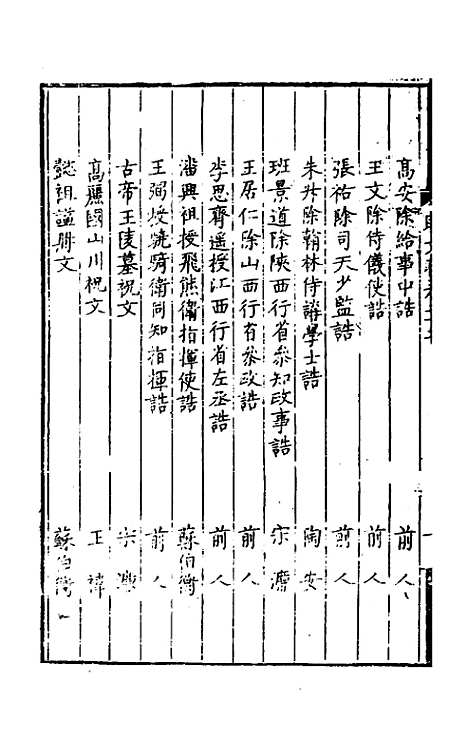 高安除給事中誥 前人
王文除侍儀使誥 前人
張祐除司天少監誥 前人
朱升除翰林侍講學士誥 陶安
班景道除陝西行省參知政事誥 宋濂
王居仁除山西行省參政誥 前人
李思齊遥授江西行省左丞誥 前人
潘興祖授飛熊衛指揮使誥 蘇伯衡
王弼授驍騎衛同知指揮誥 前人
古帝王陵墓祝文 宋濂
高麗國山川祝文 王禕
懿祖謚册文 蘇伯衡